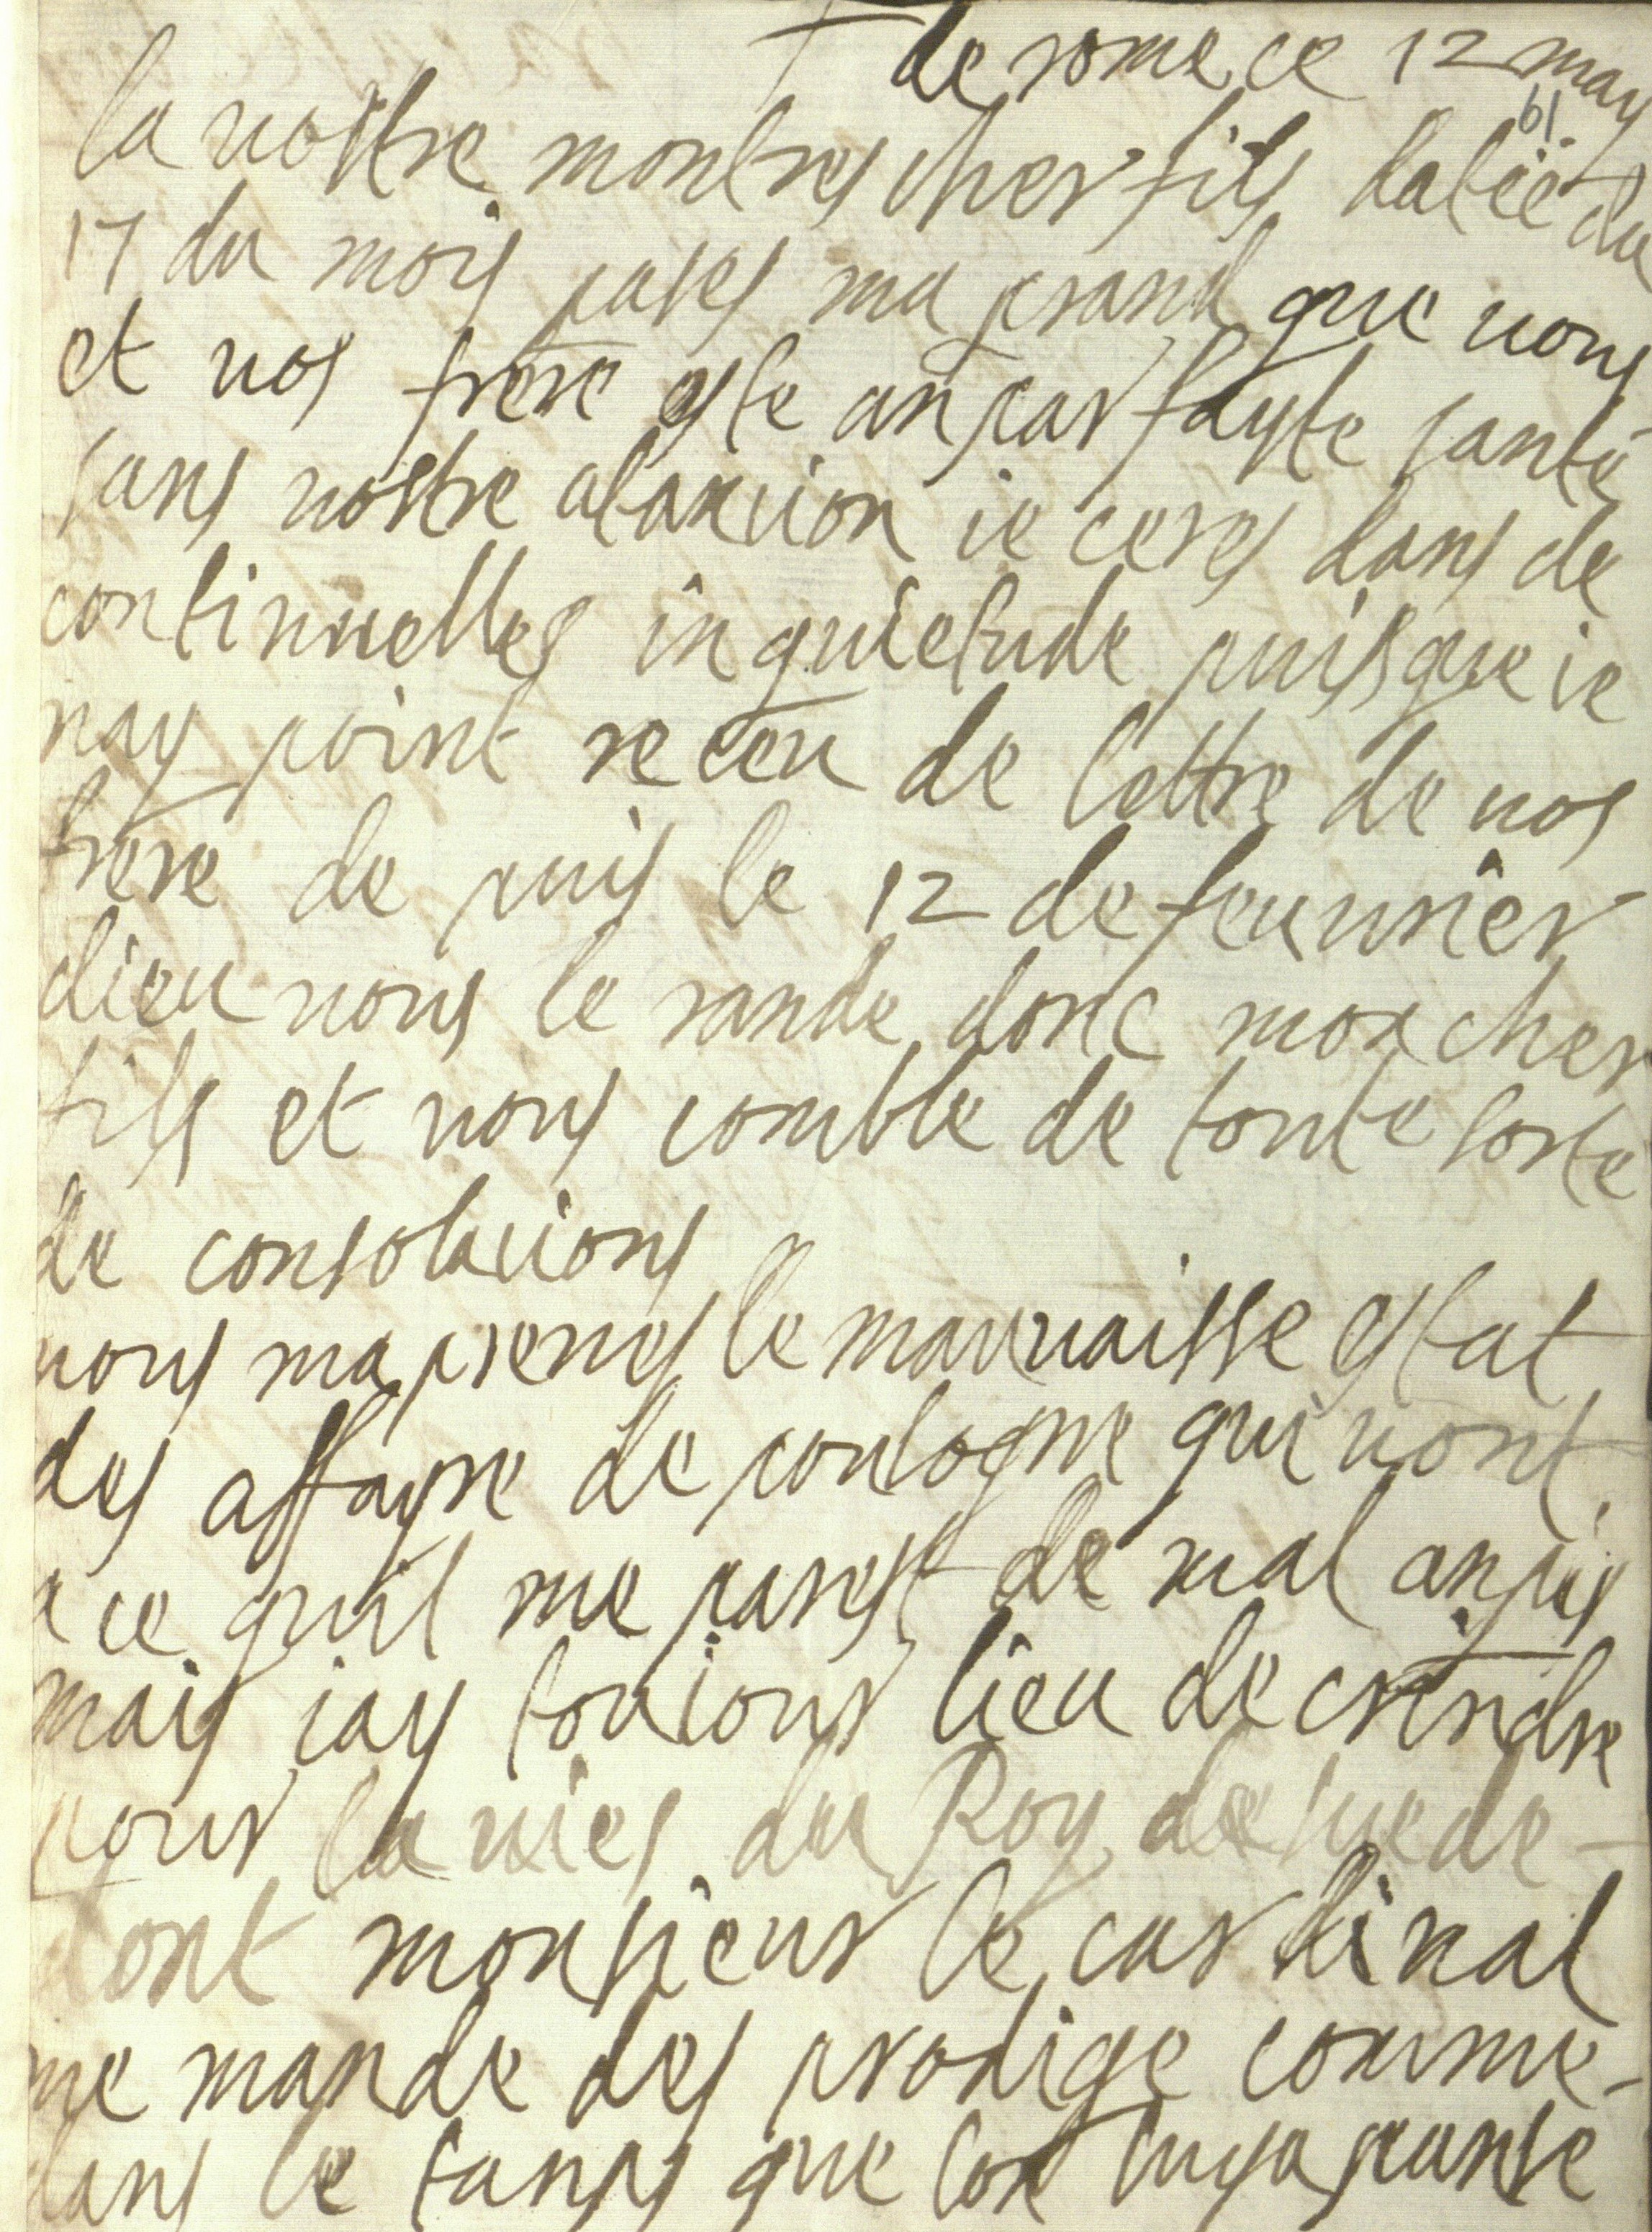 de rome ce 12 may
61
la vostre mon tres cher fils datée du
17 du mois pases ma prand que vous
et vos frere este an parfayte santé
sans vostre atanxion je ceres dans de
continuelles inquietude puisque ie
nay point receu de lettre de vos
frere de puis le 12 de feuurier
dieu vous le rande donc mon cher
fils et vous comble de toute sorte
de consolacions
vous maprenes le mauuaisse estat
des affayre de poulogne qui vont
a ce quil me parest de mal an pis
mais iay touiour lieu de crindre
pour la vies du Roy de suede
dont monsieur le cardinal
me mande des prodige comme
dans le tanps que lon luy a panse